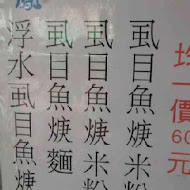 均一價60元
虱目魚焿米粉
虱目魚焿米粉
虱目魚焿麵
浮水虱目魚焿